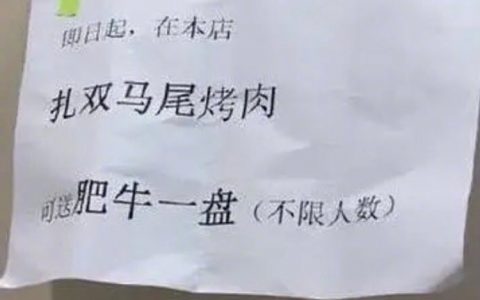 即日起，在本店
扎双马尾烤肉
可送肥牛一盘（不限人数）